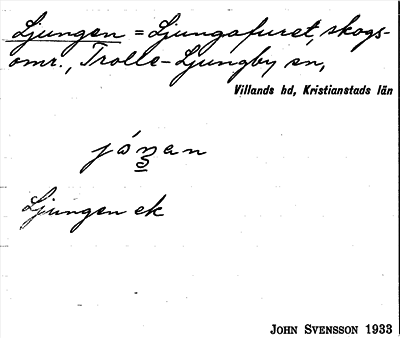 Ljungen = Ljungafuret, skogs-
omr., Trolle-Ljungby sn,
Villands hd, Kristianstads län
Ljungen ek
JOHN SVENSSON 1933